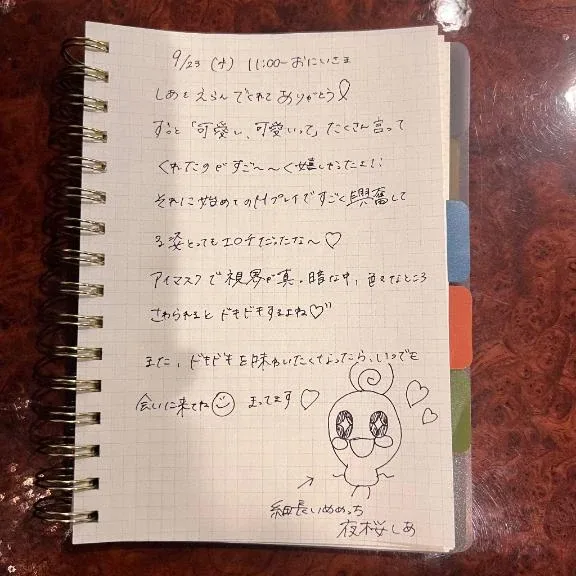 9/23 (木) 11:00~ おにいさま
しあをえらんでくれてありがとう♡
ずっと「可愛い、可愛いって」たくさん言って
くれたのがすご〜〜く嬉しかったよ!!
それに始めてのHプレイですごく興奮して
る姿とってもエロチだったな〜♡
アイマスクで視界が真っ暗な中、色々なところ
さわられるとドキドキするよね♡
また、ドキドキを味わいたくなったら、いつでも
会いに来てね☺ まってます♡
細長いめめっち
夜桜しあ